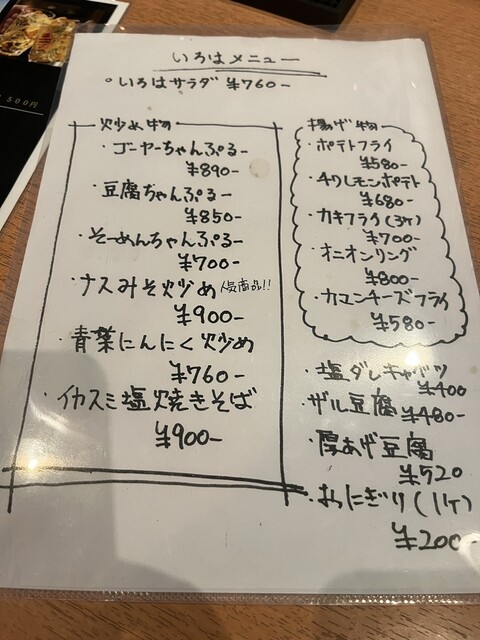 いろはメニュー
・いろはサラダ ¥760-
炒め物
・ゴーヤーちゃんぷるー
¥890-
・豆腐ちゃんぷるー
¥850-
・そーめんちゃんぷるー
¥700-
・ナスみそ炒め 人気商品!!
¥900-
・青菜にんにく炒め
¥760-
・イカスミ塩焼きそば
¥900-
揚げ物
・ポテトフライ
¥580-
・チリレモンポテト
¥680-
・カキフライ(3ヶ)
¥700-
・オニオンリング
¥800-
・カマンチーズフライ
¥580-
・塩ダレキャベツ
¥400
・ザル豆腐 ¥480-
・厚あげ豆腐
¥520
・おにぎり(1ヶ)
¥200-
500円